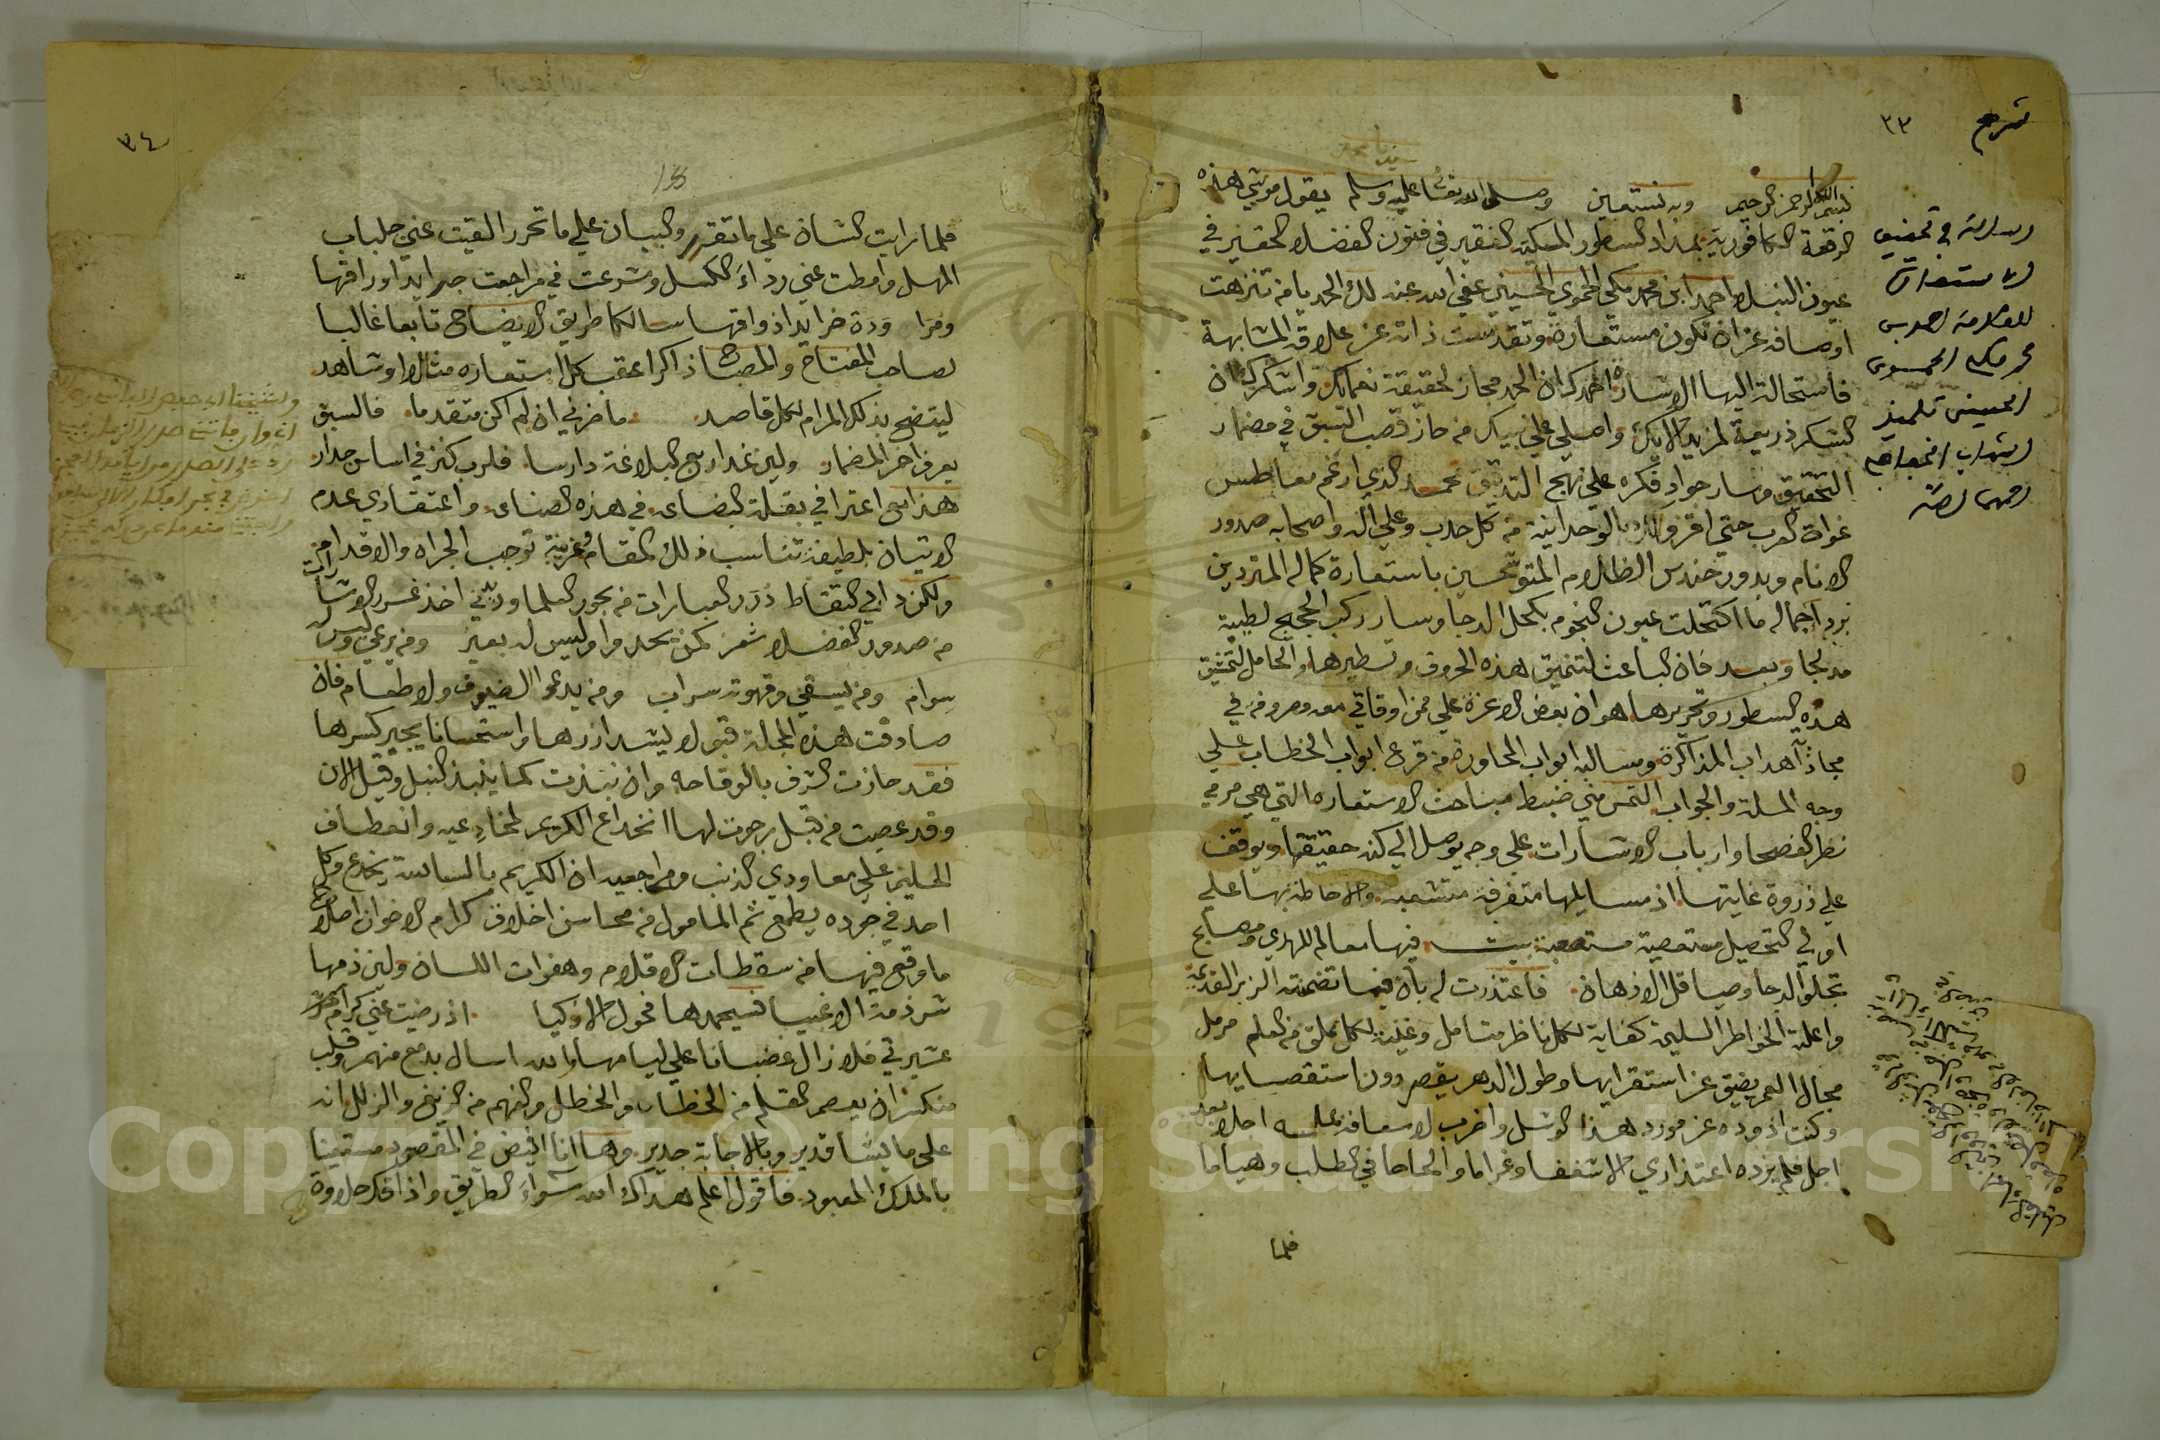 شرح ٣٣
بسم الله الرحمن الرحيم وبه نستعين وصلى الله على سيدنا محمد وسلم يقول موشي هذه
الرقعة الكافورية بمداد السطور المسكية الفقير في فنون الفضلا الحقير في
عيون النبلا احمد ابن محمد مكي الحموي الحسيني عفي الله عنه لك الحمد يا من تنزهت
اوصافه عن ان تكون مستعارة وتقدست ذاته عن علاقة المشابهة
فاستحالة اليها الاشارة احمدك ان الحمد مجاز لحقيقة نعمائك واشكرك ان
الشكر ذريعة لمزيد الايك واصلي علي نبيك من حاز قصب السبق في مضمار
التحقيق وسار جواد فكره علي نهج التدقيق محمد الذي ارغم معاطس
غواة العرب حتى اقروا بالوحدانية من كل حدب وعلي اله واصحابه صدور
الانام وبدور حندس الظلام المتوشحين باستعارة كماله المتردين
برد اجماله ما اكتحلت عيون النجوم بكحل الدجا وسار ركب الحجيج لطيبة
مدلجا وبعد فان الباعث لتنميق هذه الحروف وتسطيرها والحامل لتنميق
هذه السطور وتحريرها هو ان بعض الاعزة علي ممن اوقاتي معه مصروفة في
مجاذ اهداب المذاكرة وسالبه ابواب المحاورة من قرع ابواب الخطاب علي
وجه المسلة والجواب التمس مني ضبط مباحث الاستعاره التي هي مرمي
نظر الفصحا وارباب الاشارات علي وجه يوصل الي كنه حقيقتها ويوقف
علي ذروة غايتها اذ مسايلها متفرقة متشعبه والاحاطة بها علي
اولي التحصيل مستعصية مستصعبة فيها معالم للهدي ومصابح
تجلو الدجا وصياقل الاذهان فاعتذرت له بان فيما تضمنته الزبر القديمة
واعلته الخواطر السليمة كفاية لكل ناظر متامل وغنية لكل مملق من العلم مرمل
مجال العمر يضيق عن استقرايها وطول الدهر يقصر دون استقصايها
وكنت اذوده عن مورد هذا الوشل واضرب لاسعافه اجلا بعد
اجل فلم يزده اعتذاري الا شغفا وغراما والحاحا في الطلب وهياما
فلما
رسالة في تحقيق
الاستعارات
للعلامة احمد بن
محمد مكي الحموي
الحسيني تلميذ
الشهاب الخفاجي
رحمهما الله
٣٤
فلما رايت الشان علي ما تقرر والبيان علي ما تحرر القيت عني جلباب
المهل وامطت عني رداء الكسل وشرعت في مراجعت جرايد اوراقها
ومراودة خرايد اذواقها سالكا طريق الايضاح تابعا غالبا
لصاحب المفتاح والمصباح ذاكرا عقب كل استعاره مثالا او شاهد
ليتضح بذلك المرام لكل قاصد ما ضرني ان لم اكن متقدما فالسبق
يعرف اخر المضمار ولين غدا ربع البلاغة دارسا فلرب كنز في اساس جدار
هذا مع اعترافي بقلة البضاعه في هذه الصناعه واعتقادي عدم
الاتيان بلطيفة تناسب ذلك المقام وغريبة توجب الجراه والاقدام
ولكن دابي التقاط درر العبارات من بحور العلما وديني اخذ غرر الاشارات
من صدور الفضلا شعر كمن يحدوا وليس له بعير ومن يرعي وليس له
سوام ومن يسقي وقهوته سراب ومن يدعوا الضيوف ولا طعام فان
صادفت هذه المجلة قبولا يشد ازرها واستحسانا يجبر كسرها
فقد حازت الشرف بالوقاحه وان نبذت كما ينبذ النبل وقيل الان
وقد عصيت من قبل رجوت لها انخداع الكريم لمخادعيه وانعطاف
الحليم علي معاودي الذنب ومراجعيه ان الكريم بالسالسة يخدع وكل
احد في جوده يطمع ثم المامول من محاسن اخلاق كرام الاخوان اصلاح
ما وقع فيها من سقطات الاقلام وهفوات اللسان ولين ذمها
شرذمة الاغبيا فسيحمدها فحول الاذكيا اذ رضيت عني كرام
عشيرتي فلا زال غضبانا علي ليامها والله اسال بدمع منهمر وقلب
منكسر ان يعصم القلم من الخطا والخطل والفهم من الزيغ والزلل انه
علي ما يشا قدير وبالاجابة جدير وها انا افيض في المقصود مستعينا
بالملك المعبود فاقول اعلم هداك الله سواء الطريق واذاقك حلاوة
Copyright © King Saud University
1957